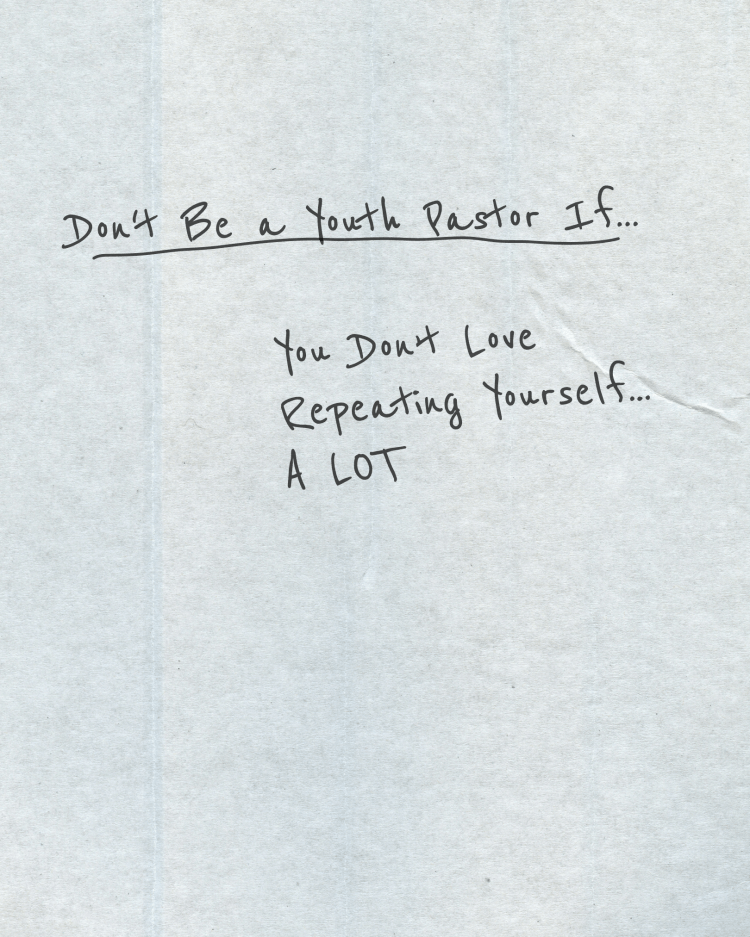 Don't Be a Youth Pastor If...
You Don't Love
Repeating Yourself...
A LOT